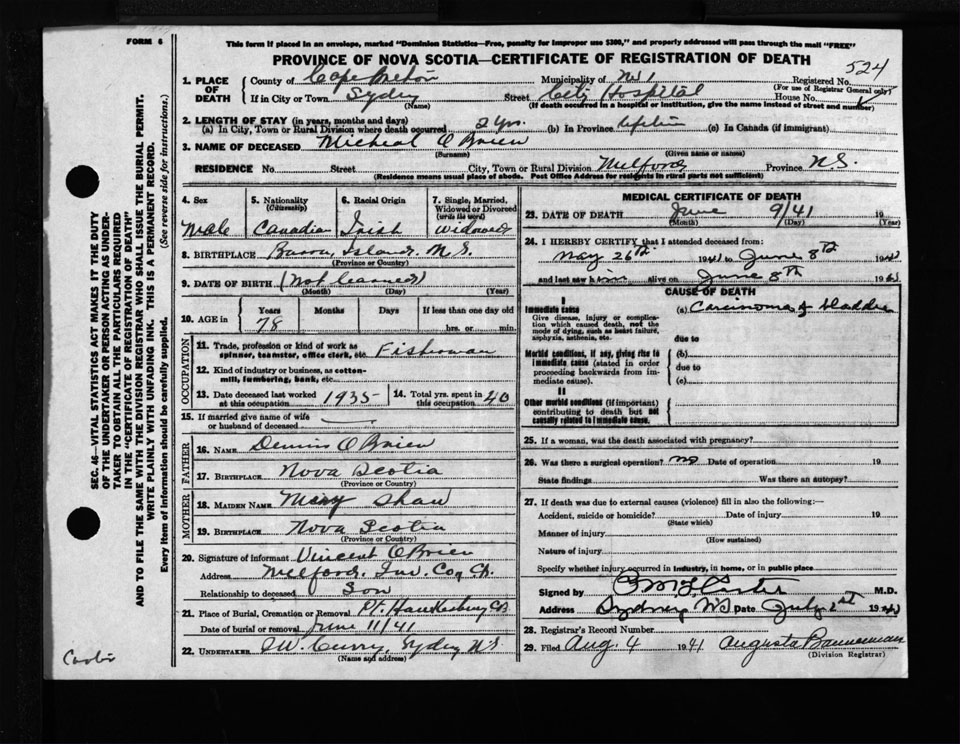 FORM 6
This form if placed in an envelope, marked "Dominion Statistics—Free, penalty for improper use $300," and properly addressed will pass through the mail "FREE"
PROVINCE OF NOVA SCOTIA—CERTIFICATE OF REGISTRATION OF DEATH
524
1. PLACE OF DEATH
County of Cape Breton Municipality of No 1 Registered No.
(For use of Registrar General only)
If in City or Town Sydney Street City Hospital House No.
(Name) (If death occurred in a hospital or institution, give the name instead of street and number)
2. LENGTH OF STAY (in years, months and days)
(a) In City, Town or Rural Division where death occurred 2 yrs. (b) In Province Lifetime (c) In Canada (if immigrant)
3. NAME OF DECEASED Micheal O Brien
(Surname) (Given name or names)
RESIDENCE No. Street City, Town or Rural Division Melford Province N.S.
(Residence means usual place of abode. Post Office Address for residents in rural parts not sufficient)
4. Sex Male
5. Nationality (Citizenship) Canadian
6. Racial Origin Irish
7. Single, Married, Widowed or Divorced (write the word) widowed
8. BIRTHPLACE Island, N.S.
(Province or Country)
9. DATE OF BIRTH (Not
(Month) (Day) (Year)
10. AGE in Years 78 Months Days If less than one day old hrs. or min.
OCCUPATION
11. Trade, profession or kind of work as spinner, teamster, office clerk, etc. Fisherman
12. Kind of industry or business, as cotton-mill, lumbering, bank, etc.
13. Date deceased last worked at this occupation 1935
14. Total yrs. spent in this occupation 40
15. If married give name of wife or husband of deceased
FATHER
16. NAME Dennis O Brien
17. BIRTHPLACE Nova Scotia
(Province or Country)
MOTHER
18. MAIDEN NAME Mary Shaw
19. BIRTHPLACE Nova Scotia
(Province or Country)
20. Signature of informant Vincent O Brien
Address Melford, Inv. Co, C.B.
Relationship to deceased Son
21. Place of Burial, Cremation or Removal Pt. Hawkesbury CB
Date of burial or removal June 11/41
22. UNDERTAKER W. Curry, Sydney N.S.
(Name and address)
MEDICAL CERTIFICATE OF DEATH
23. DATE OF DEATH June 9/41 19
(Month) (Day) (Year)
24. I HEREBY CERTIFY that I attended deceased from:
May 26th 1941 to June 8th 1941
and last saw him alive on June 8th 1941
CAUSE OF DEATH
I
Immediate cause (a) Carcinoma of bladder
Give disease, injury or complication which caused death, not the mode of dying, such as heart failure, asphyxia, asthenia, etc.
due to
Morbid conditions, if any, giving rise to immediate cause (stated in order proceeding backwards from immediate cause).
(b)
due to
(c)
II
Other morbid conditions (if important) contributing to death but not causally related to immediate cause.
25. If a woman, was the death associated with pregnancy?
26. Was there a surgical operation? no Date of operation 19
State findings Was there an autopsy?
27. If death was due to external causes (violence) fill in also the following:—
Accident, suicide or homicide? Date of injury 19
(State which)
Manner of injury
(How sustained)
Nature of injury
Specify whether injury occurred in industry, in home, or in public place
Signed by M.D.
Address Sydney NS Date July 2st 1941
28. Registrar's Record Number
29. Filed Aug. 4 1941 Augusta Bannerman
(Division Registrar)
SEC. 46—VITAL STATISTICS ACT MAKES IT THE DUTY
OF THE UNDERTAKER OR PERSON ACTING AS UNDER-
TAKER TO OBTAIN ALL THE PARTICULARS REQUIRED
IN THE "CERTIFICATE OF REGISTRATION OF DEATH"
AND TO FILE THE SAME WITH THE DIVISION REGISTRAR WHO SHALL ISSUE THE BURIAL PERMIT.
WRITE PLAINLY WITH UNFADING INK. THIS IS A PERMANENT RECORD.
Every item of information should be carefully supplied. (See reverse side for instructions.)